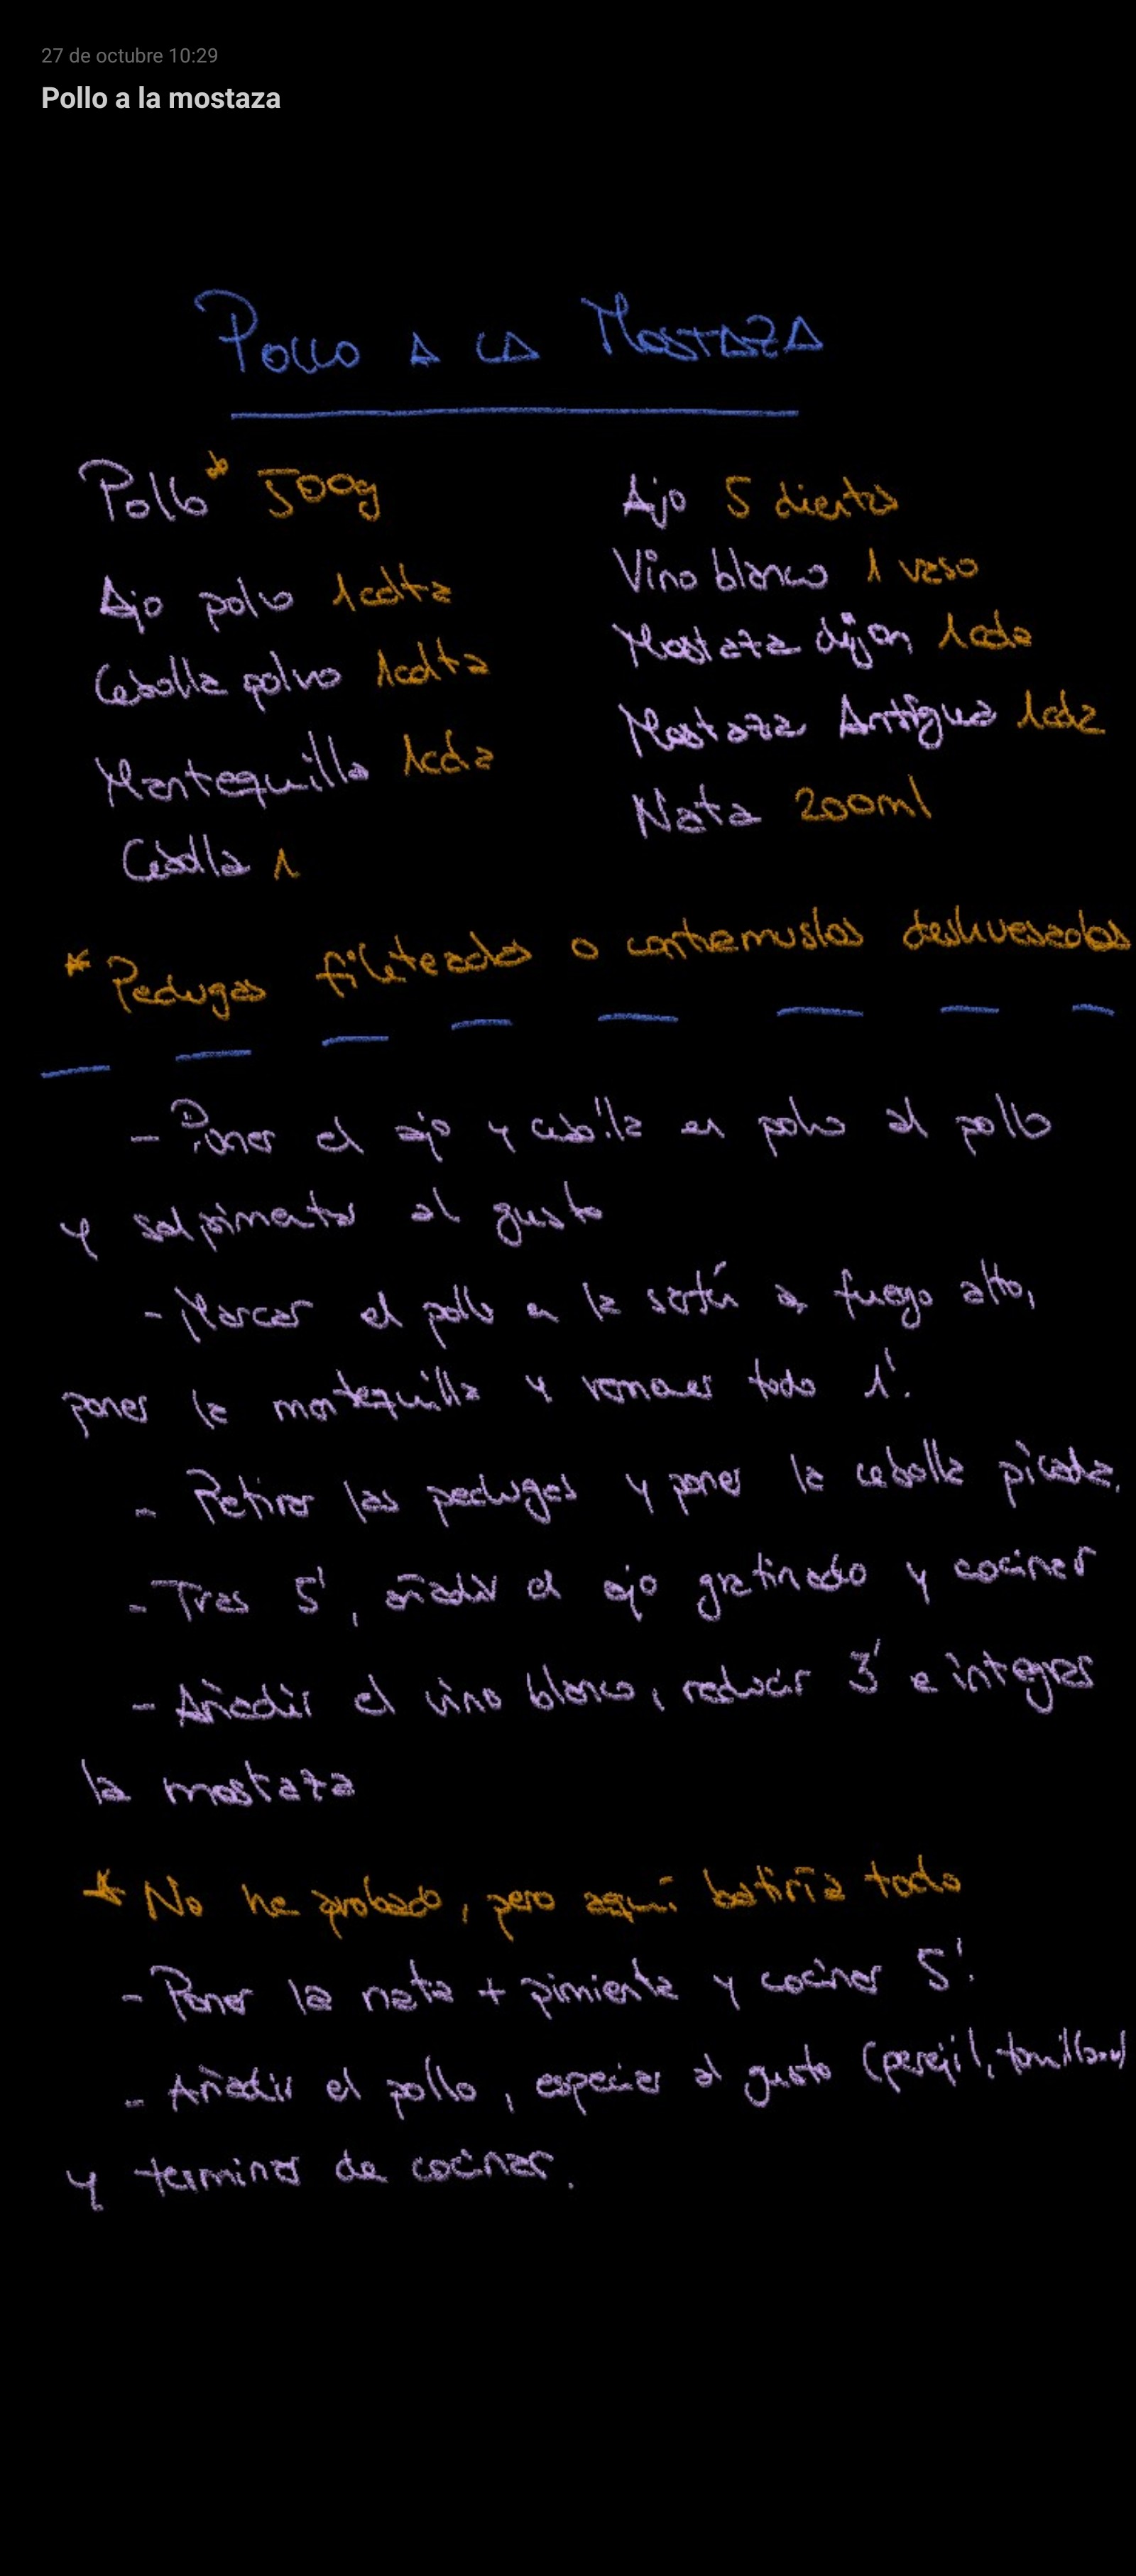 27 de octubre 10:29
Pollo a la mostaza
POLLO A LA MOSTAZA
Pollo* 500g
Ajo polvo 1cdta
Cebolla polvo 1cdta
Mantequilla 1cda
Cebolla 1
Ajo 5 dientes
Vino blanco 1 vaso
Mostaza dijon 1cda
Mostaza Antigua 1cda
Nata 200ml
* Pechugas fileteadas o contramuslos deshuesados
- Poner el ajo y cebolla en polvo al pollo
y salpimentar al gusto
- Marcar el pollo en la sartén a fuego alto,
poner la mantequilla y remover todo 1'.
- Retirar las pechugas y poner la cebolla picada.
- Tras 5', añadir el ajo gratinado y cocinar
- Añadir el vino blanco, reducir 3' e integrar
la mostaza
* No he probado, pero aquí batiría todo
- Poner la nata + pimienta y cocinar 5'.
- Añadir el pollo, especiar al gusto (perejil, tomillo...)
y terminar de cocinar.